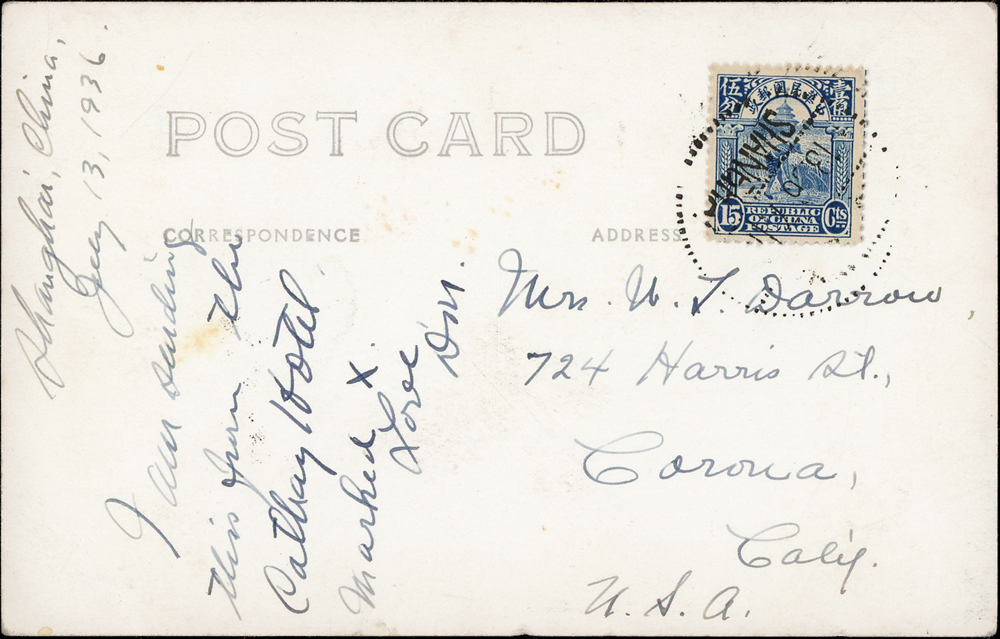 POST CARD
CORRESPONDENCE
ADDRESS
Shanghai, China,
July 13, 1936.
I am sending
this from the
Cathay Hotel
marked X
Love
Mrs. W. T. Darrow
724 Harris St.,
Corona,
Calif.
U. S. A.
伍分
壹角
中華民國郵政
15 Cts
REPUBLIC
OF CHINA
POSTAGE
SHANGHAI